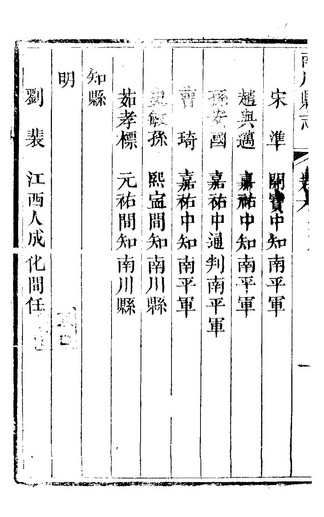 南川縣志 卷六
宋準 開寶中知南平軍
趙與邁 嘉祐中知南平軍
孫安國 嘉祐中通判南平軍
曹琦 嘉祐中知南平軍
史敏孫 熙寧間知南川縣
茹孝標 元祐間知南川縣
知縣
明
劉裴 江西人成化間任